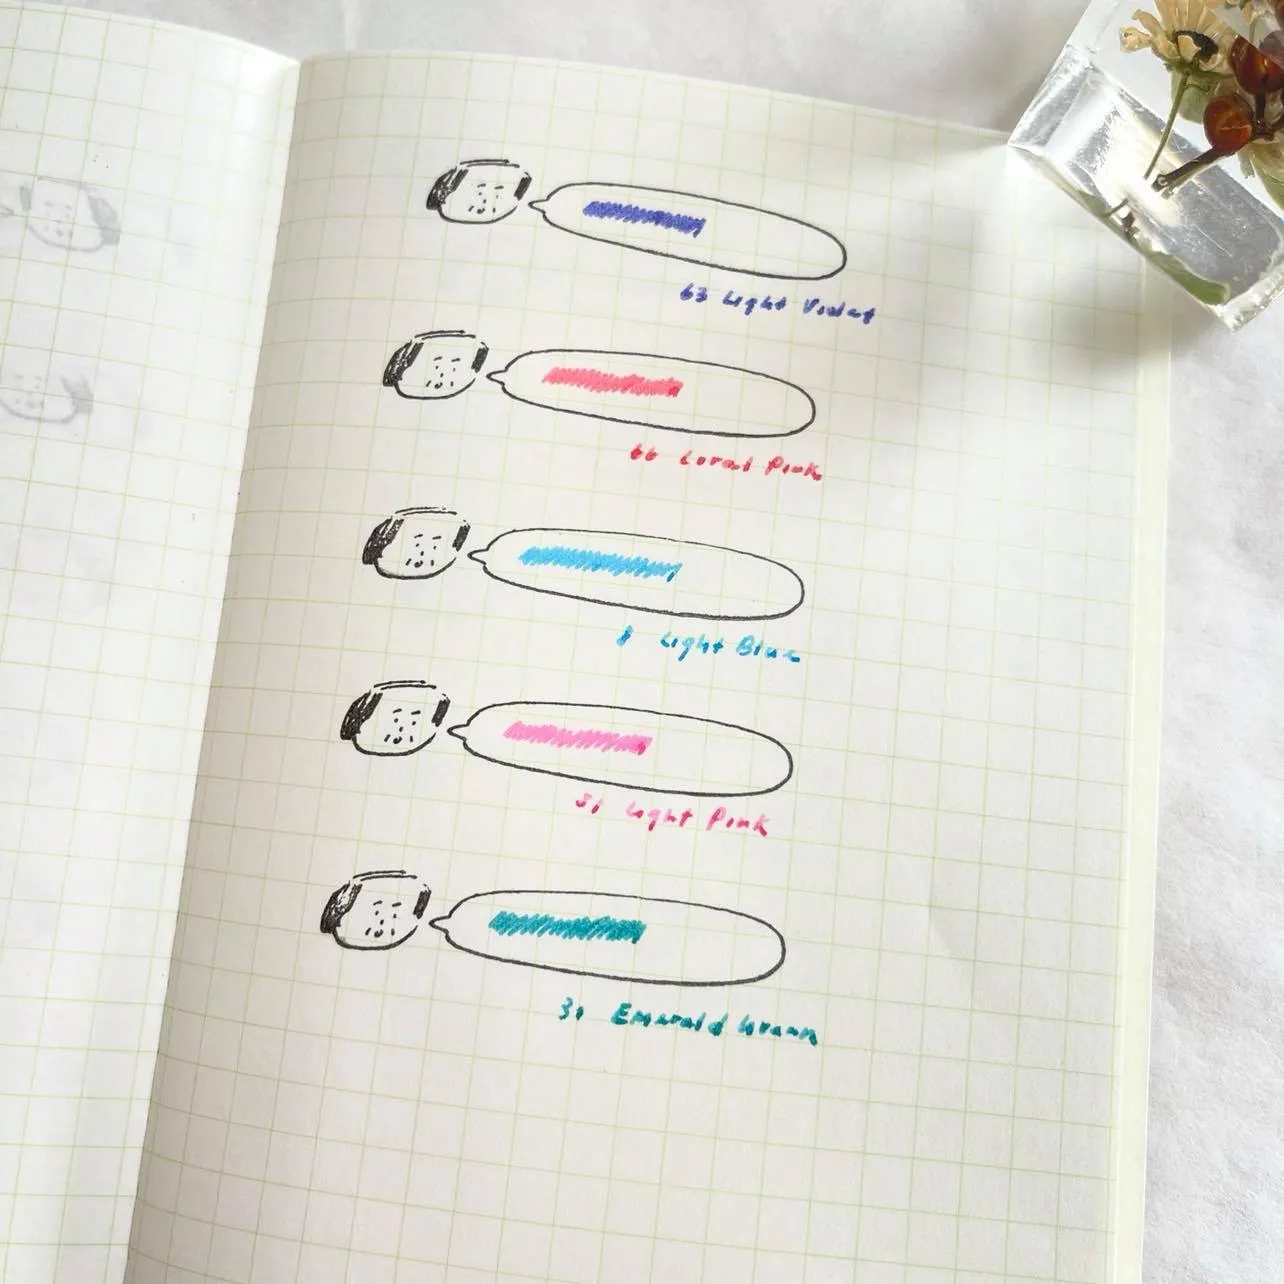 63 Light Violet
66 Coral Pink
8 Light Blue
51 Light Pink
31 Emerald Green